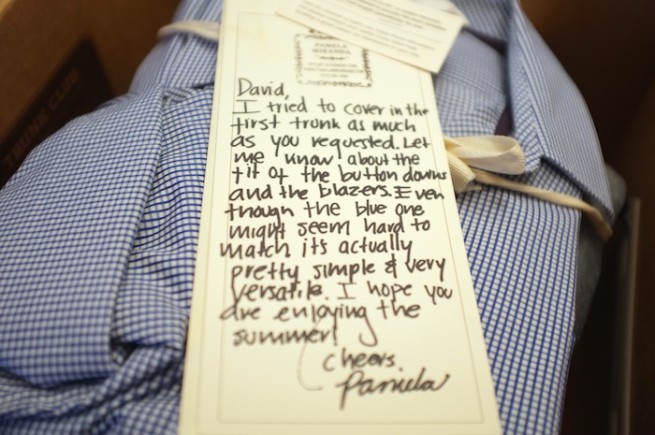 PAMELA
MIRANDA
David,
I tried to cover in the
first trunk as much
as you requested. Let
me know about the
fit of the button downs
and the blazers. Even
though the blue one
might seem hard to
match its actually
pretty simple & very
versatile. I hope you
are enjoying the
summer!
cheers,
Pamela
TRUNK CLUB